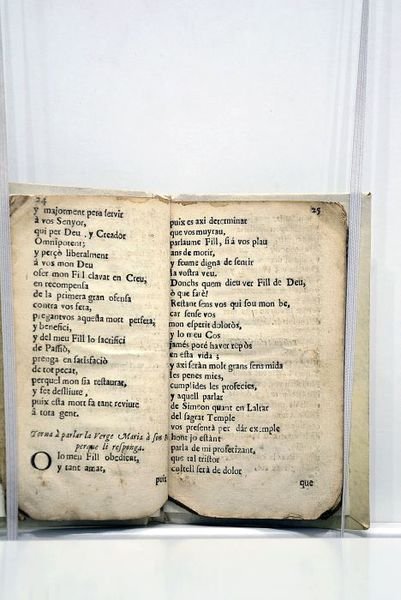 24
y majorment pera servir
à vos Senyor,
qui per Deu, y Creador
Omnipotent;
y perçò liberalment
à vos mon Deu
ofer mon Fill clavat en Creu,
en recompensa
de la primera gran ofensa
contra vos feta,
pregantvos aquesta mort perfeta,
y benefici,
y del meu Fill lo sacrifici
de Passiò,
prenga en satisfaciò
de tot pecat,
perquel mon sia restaurat,
y fet desliure,
puix esta mort fa tant reviure
à tota gent.
Torna à parlar la Verge Maria à son
perque li responga.
O lo meu Fill obedient,
y tant amat,
puix
25
puix es axi determinat
que vos muyrau,
parlaume Fill, si à vos plau
ans de morir,
y feume digna de sentir
la vostra veu.
Donchs quem dieu ver Fill de Deu,
ò que farè!
Restant sens vos qui sou mon be,
car sense vos
mon esperit doloròs,
y lo meu Cos
jamès porè haver repòs
en esta vida;
y axi seràn molt grans sens mida
les penes mies,
cumplides les profecies,
y aquell parlar
de Simeon quant en Laltar
del sagrat Temple
vos presentà per dar exemple
hont jo estant
parla de mi profetizant,
que tal tristor
coltell serà de dolor
que